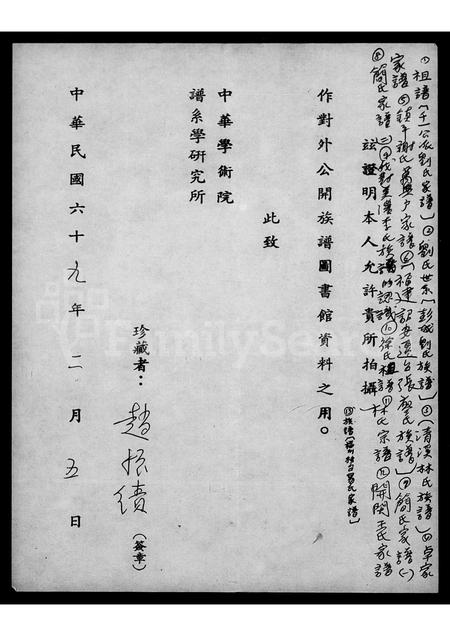 ①祖譜(千一公派劉氏家譜)②劉氏世系(彭城劉氏族譜)③(清溪林氏族譜)四卓家
家譜⑤鎮平謝氏萬興戶家譜⑥(福建詔安遷台張廖氏族譜)⑦簡氏家譜(一)
⑧簡氏家譜(二)⑨李氏族譜的認識⑩徐氏祖譜⑪林氏宗譜⑫開閩王氏家譜
⑬族譜
茲證明本人允許貴所拍攝
作對外公開族譜圖書館資料之用。
此致
中華學術院
譜系學研究所
珍藏者：趙振績(簽章)
中華民國六十九年二月五日
FamilySearch